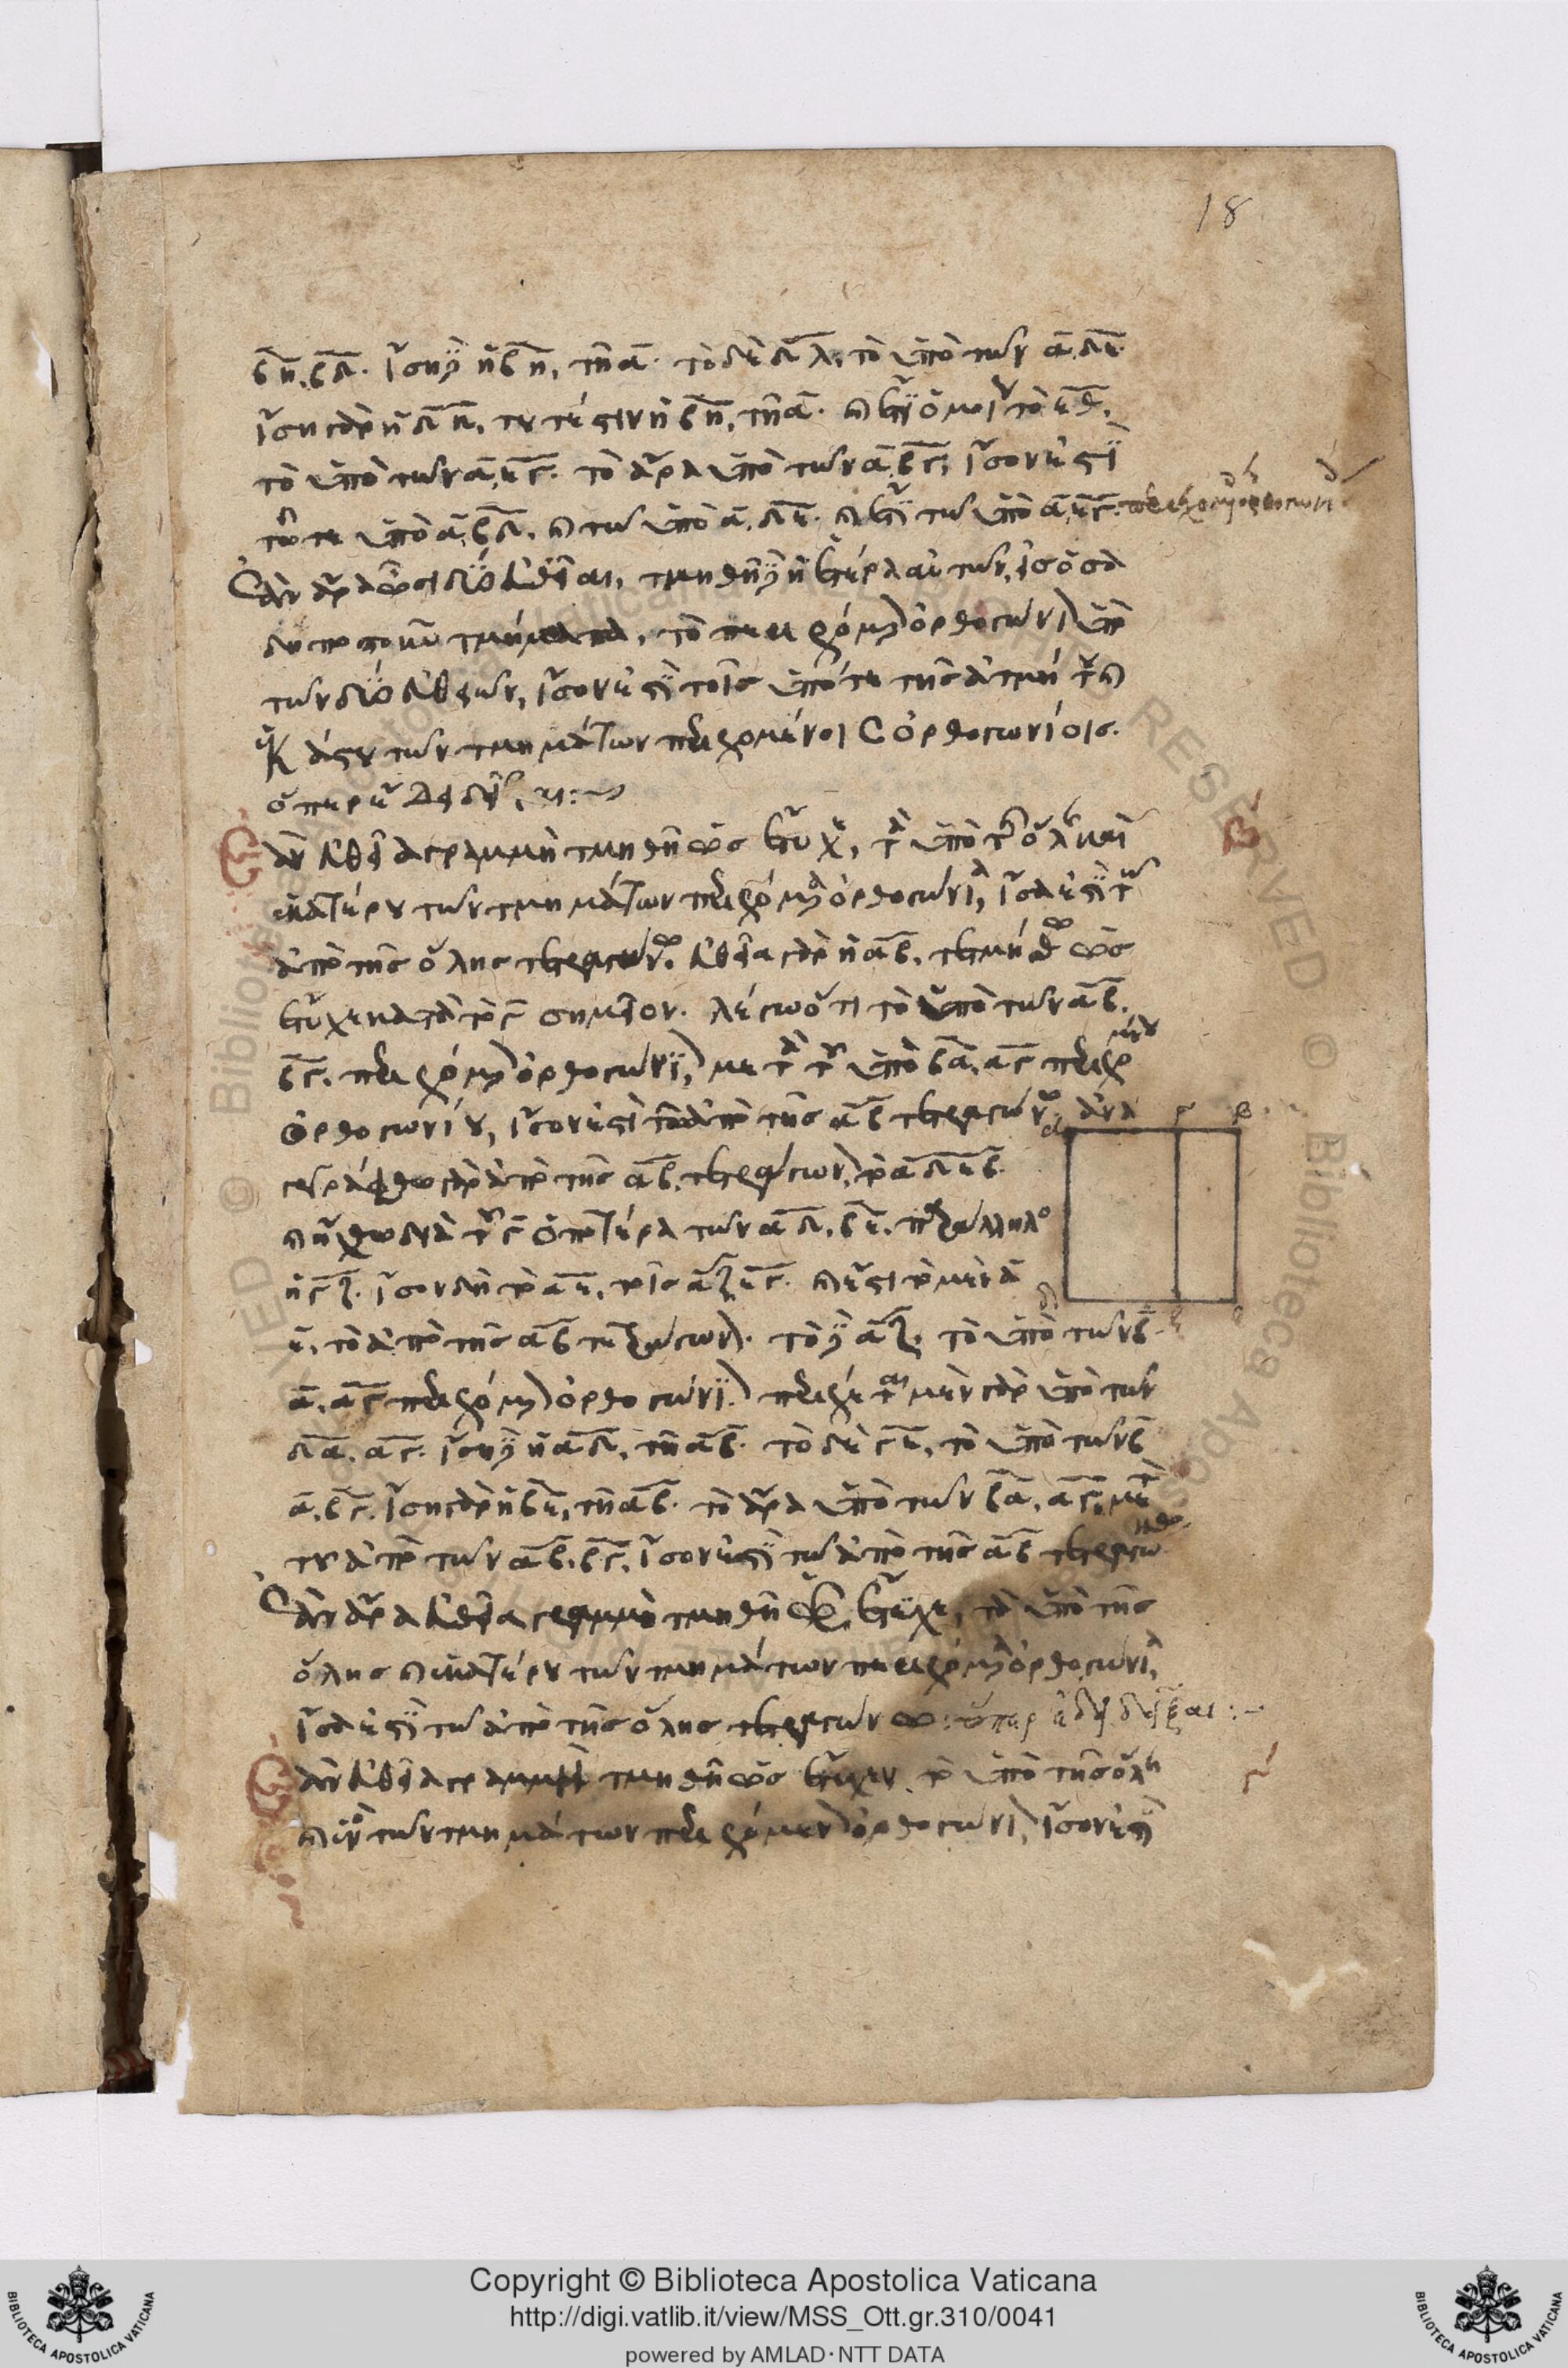 18
βη, βδ· ἴση γὰρ ἡ βη, τῆ α· τὸ δὲ δλ, τὸ ὑπὸ τῶν α, δε·
ἴση γὰρ ἡ δκ, τουτέστιν ἡ βη, τῆ α· καὶ ἔτι ὁμοίως τὸ εθ,
τὸ ὑπὸ τῶν α, εγ· τὸ ἄρα ὑπὸ τῶν α, βγ, ἴσον ἐστὶ
τῶ τε ὑπὸ α, βδ, καὶ τῶ ὑπὸ α, δε· καὶ ἔτι τῶ ὑπὸ α, εγ περιεχομένω ὀρθογωνίω
Ἐὰν ἄρα ὦσι δύο εὐθεῖαι, τμηθῆ δὲ ἡ ἑτέρα αὐτῶν, εἰς ὅσα
δηποτοῦν τμήματα, τὸ περιεχόμενον ὀρθογώνιον ὑπὸ
τῶν δύο εὐθειῶν, ἴσον ἐστὶ τοῖς ὑπό τε τῆς ἀτμήτου καὶ
ἑκάστου τῶν τμημάτων περιεχομένοις ὀρθογωνίοις.
ὅπερ ἔδει δεῖξαι:
Ἐὰν εὐθεῖα γραμμὴ τμηθῆ ὡς ἔτυχε, τὰ ὑπὸ τῆς ὅλης καὶ
β
ἑκατέρου τῶν τμημάτων περιεχόμενα ὀρθογώνια, ἴσα ἐστὶ τῶ
ἀπὸ τῆς ὅλης τετραγώνω. εὐθεῖα γὰρ ἡ αβ, τετμήσθω ὡς
ἔτυχε κατὰ τὸ γ σημεῖον· λέγω ὅτι τὸ ὑπὸ τῶν αβ,
βγ, περιεχόμενον ὀρθογώνιον, μετὰ τοῦ ὑπὸ βα, αγ περιεχομένου
ὀρθογωνίου, ἴσον ἐστὶ τῶ ἀπὸ τῆς αβ τετραγώνω. ἀνα
γεγράφθω γὰρ ἀπὸ τῆς αβ, τετράγωνον, τὸ αδεβ
καὶ ἤχθω διὰ τοῦ γ ὁποτέρα τῶν αδ, βε, παράλληλος
ἡ γζ. ἴσον δὴ τὸ αε, τοῖς αζ, γε. καὶ ἔστι τὸ μὲν α
ε, τὸ ἀπὸ τῆς αβ τετράγωνον. τὸ δὲ αζ, τὸ ὑπὸ τῶν β
α, αγ περιεχόμενον ὀρθογώνιον. περιέχεται μὲν γὰρ ὑπὸ τῶν
δα, αγ. ἴση δὲ ἡ αδ, τῆ αβ. τὸ δὲ γε, τὸ ὑπὸ τῶν
α, βγ. ἴση γὰρ ἡ βε, τῆ αβ. τὸ ἄρα ὑπὸ τῶν βα, αγ, μετὰ
τοῦ ἀπὸ τῶν αβ, βγ, ἴσον ἐστὶ τῶ ἀπὸ τῆς αβ τετραγώνω
Ἐὰν ἄρα εὐθεῖα γραμμὴ τμηθῆ ὡς ἔτυχε, τὰ ὑπὸ τῆς
ὅλης καὶ ἑκατέρου τῶν τμημάτων περιεχόμενα ὀρθογώνια,
ἴσα ἐστὶ τῶ ἀπὸ τῆς ὅλης τετραγώνω: ὅπερ ἔδει δεῖξαι:
Ἐὰν εὐθεῖα γραμμὴ τμηθῆ ὡς ἔτυχεν, τὸ ὑπὸ τῆς ὅλης
γ
καὶ ἑνὸς τῶν τμημάτων περιεχόμενον ὀρθογώνιον, ἴσον ἐστὶ
α γ β
δ ζ ε
Copyright © Biblioteca Apostolica Vaticana
http://digi.vatlib.it/view/MSS_Ott.gr.310/0041
powered by AMLAD·NTT DATA
BIBLIOTECA APOSTOLICA VATICANA
BIBLIOTECA APOSTOLICA VATICANA